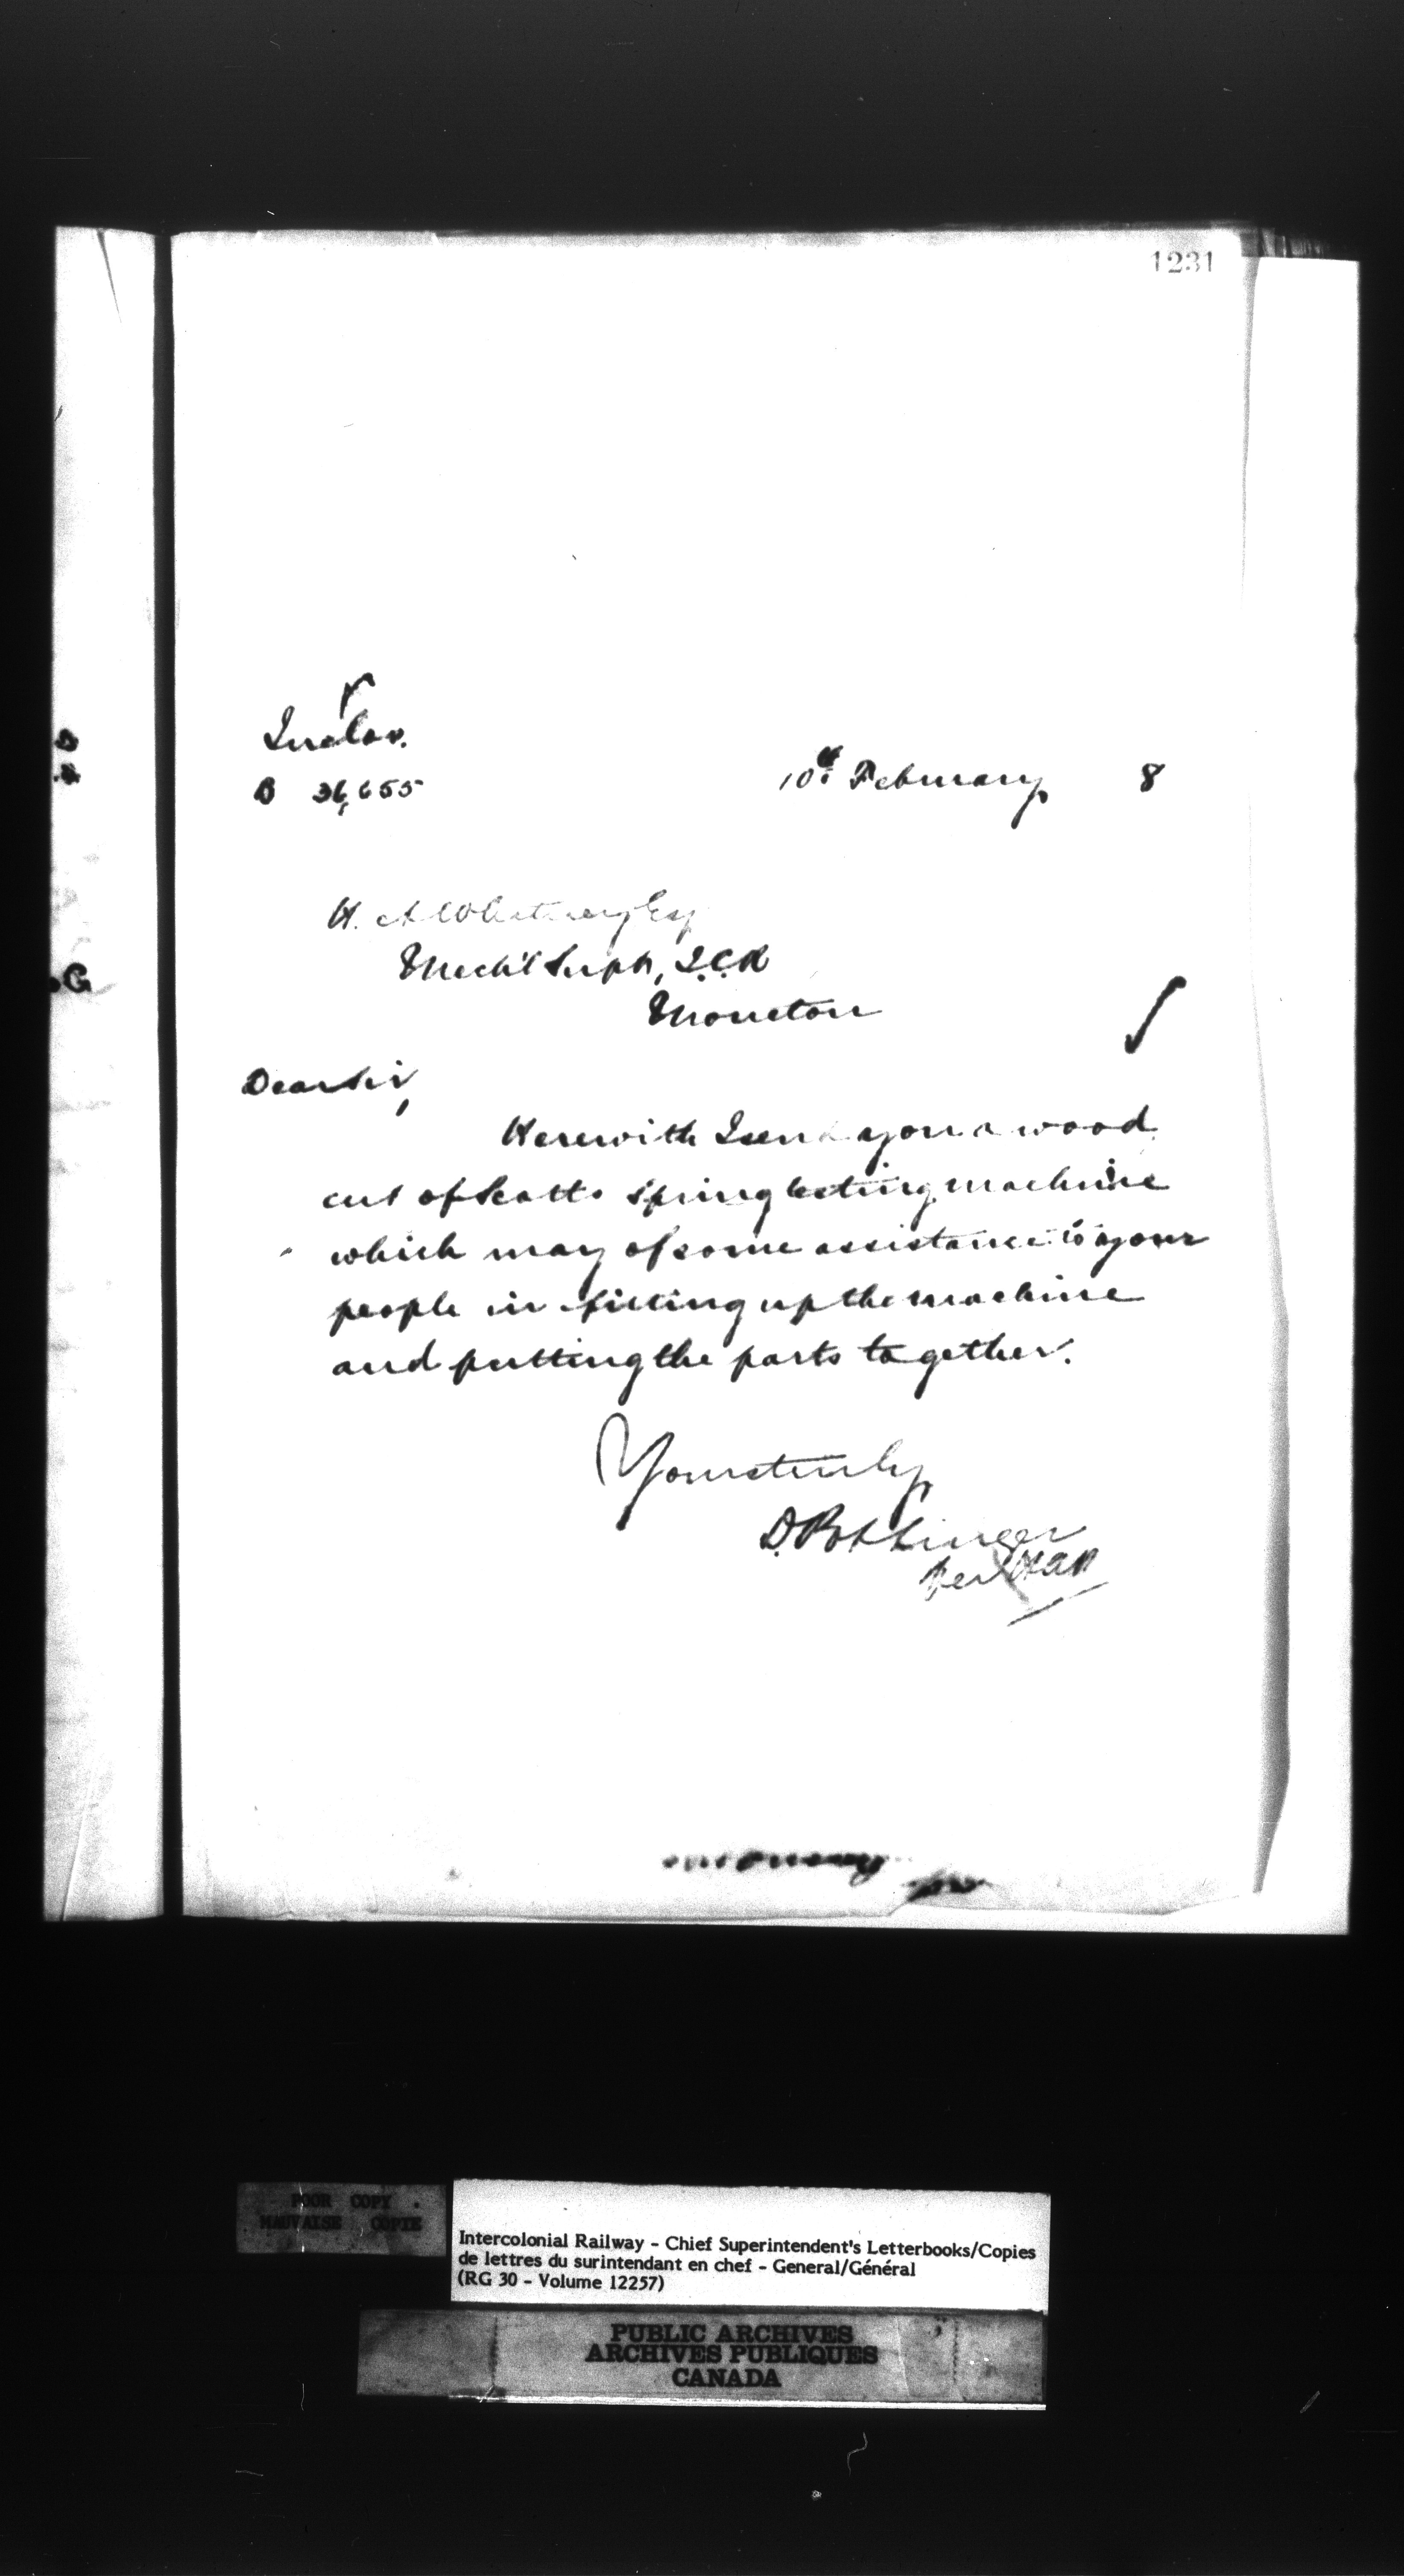 1231
Inclos.
B 36,655
10th February 8
H. A Whitney Esq
Mech'l Supt, I.C.R
Moncton
Dear Sir,
Herewith I send you a wood
cut of Scotts spring testing machine
which may of some assistance to your
people in fitting up the machine
and putting the parts together.
Yours truly
D. Pottinger
Per
POOR COPY
MAUVAISE COPIE
Intercolonial Railway - Chief Superintendent's Letterbooks/Copies
de lettres du surintendant en chef - General/Général
(RG 30 - Volume 12257)
PUBLIC ARCHIVES
ARCHIVES PUBLIQUES
CANADA